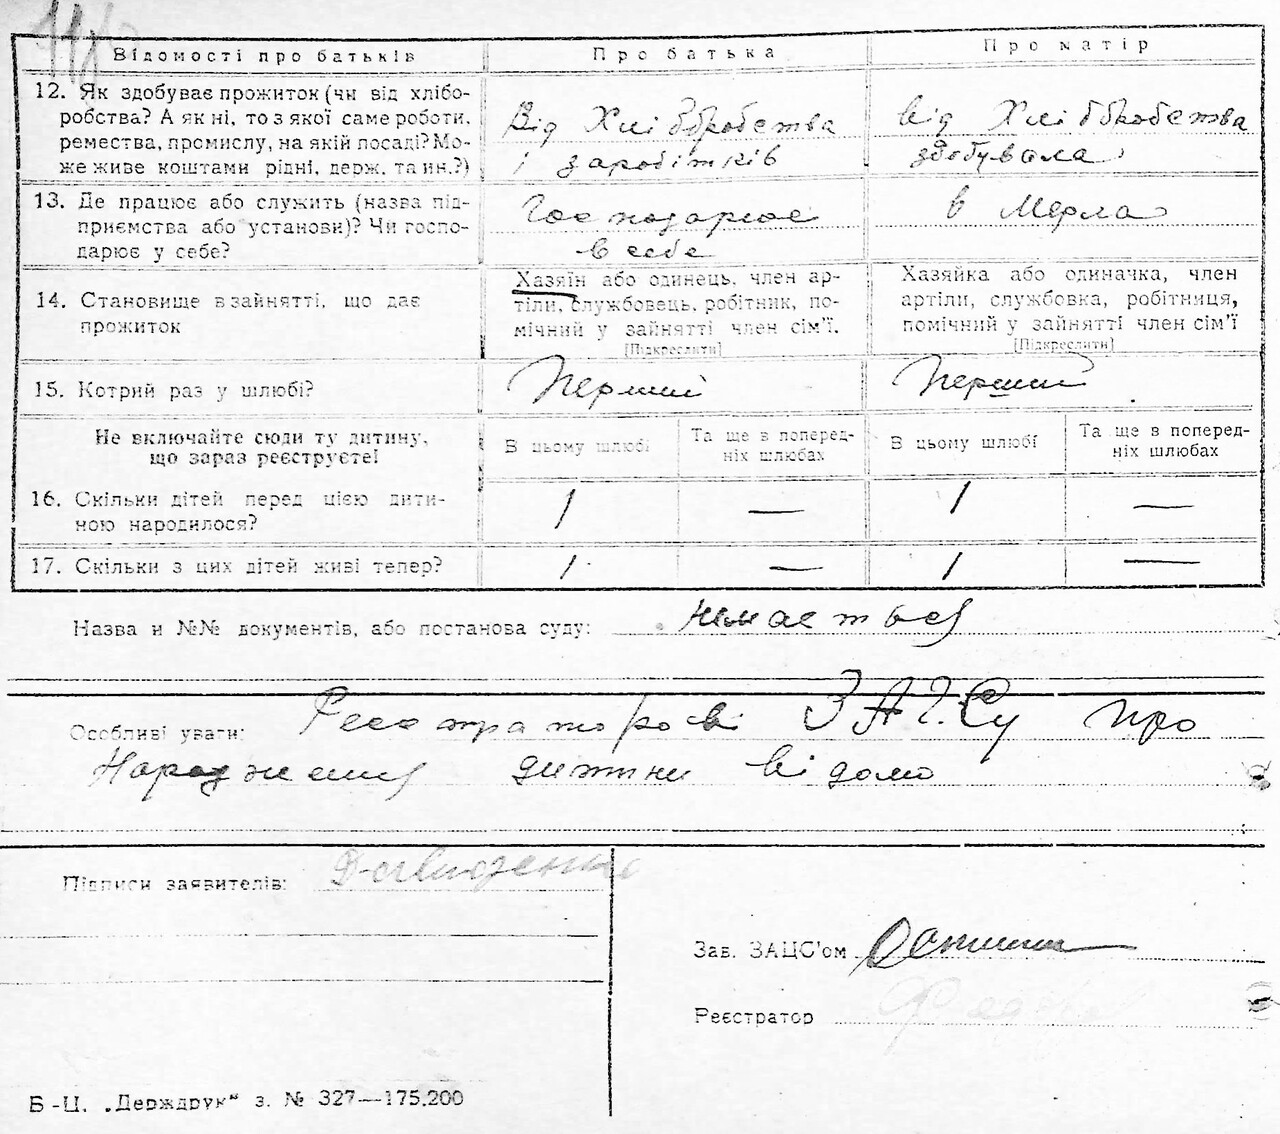 Відомості про батьків
Про батька
Про матір
12. Як здобуває прожиток (чи від хлібо-
робства? А як ні, то з якої саме роботи,
ремества, промислу, на якій посаді? Мо-
же живе коштами рідні, держ. та ин.?)
Від Хліборобства
і заробітків
від Хліборобства
здобувала
13. Де працює або служить (назва під-
приємства або установи)? Чи госпо-
дарює у себе?
Господарює
в себе
14. Становище в зайнятті, що дає
прожиток
Хазяїн або одинець, член ар-
тіли, службовець, робітник, по-
мічний у зайнятті член сім'ї.
[Підкреслити]
Хазяйка або одиначка, член
артіли, службовка, робітниця,
помічний у зайнятті член сім'ї
[Підкреслити]
15. Котрий раз у шлюбі?
Перший
Перший
Не включайте сюди ту дитину,
що зараз реєструєте!
В цьому шлюбі
Та ще в поперед-
ніх шлюбах
В цьому шлюбі
Та ще в поперед-
ніх шлюбах
16. Скільки дітей перед цією дити-
ною народилося?
1 — 1 —
17. Скільки з цих дітей живі тепер?
1 — 1 —
Назва и №№ документів, або постанова суду: немаеться
Особливі уваги: Реєстраторові ЗАГСу про
Народження дитини відомо
Підписи заявителів:
Зав. ЗАЦС'ом
Реєстратор
Б-Ц. „Держдрук“ з. № 327—175.200